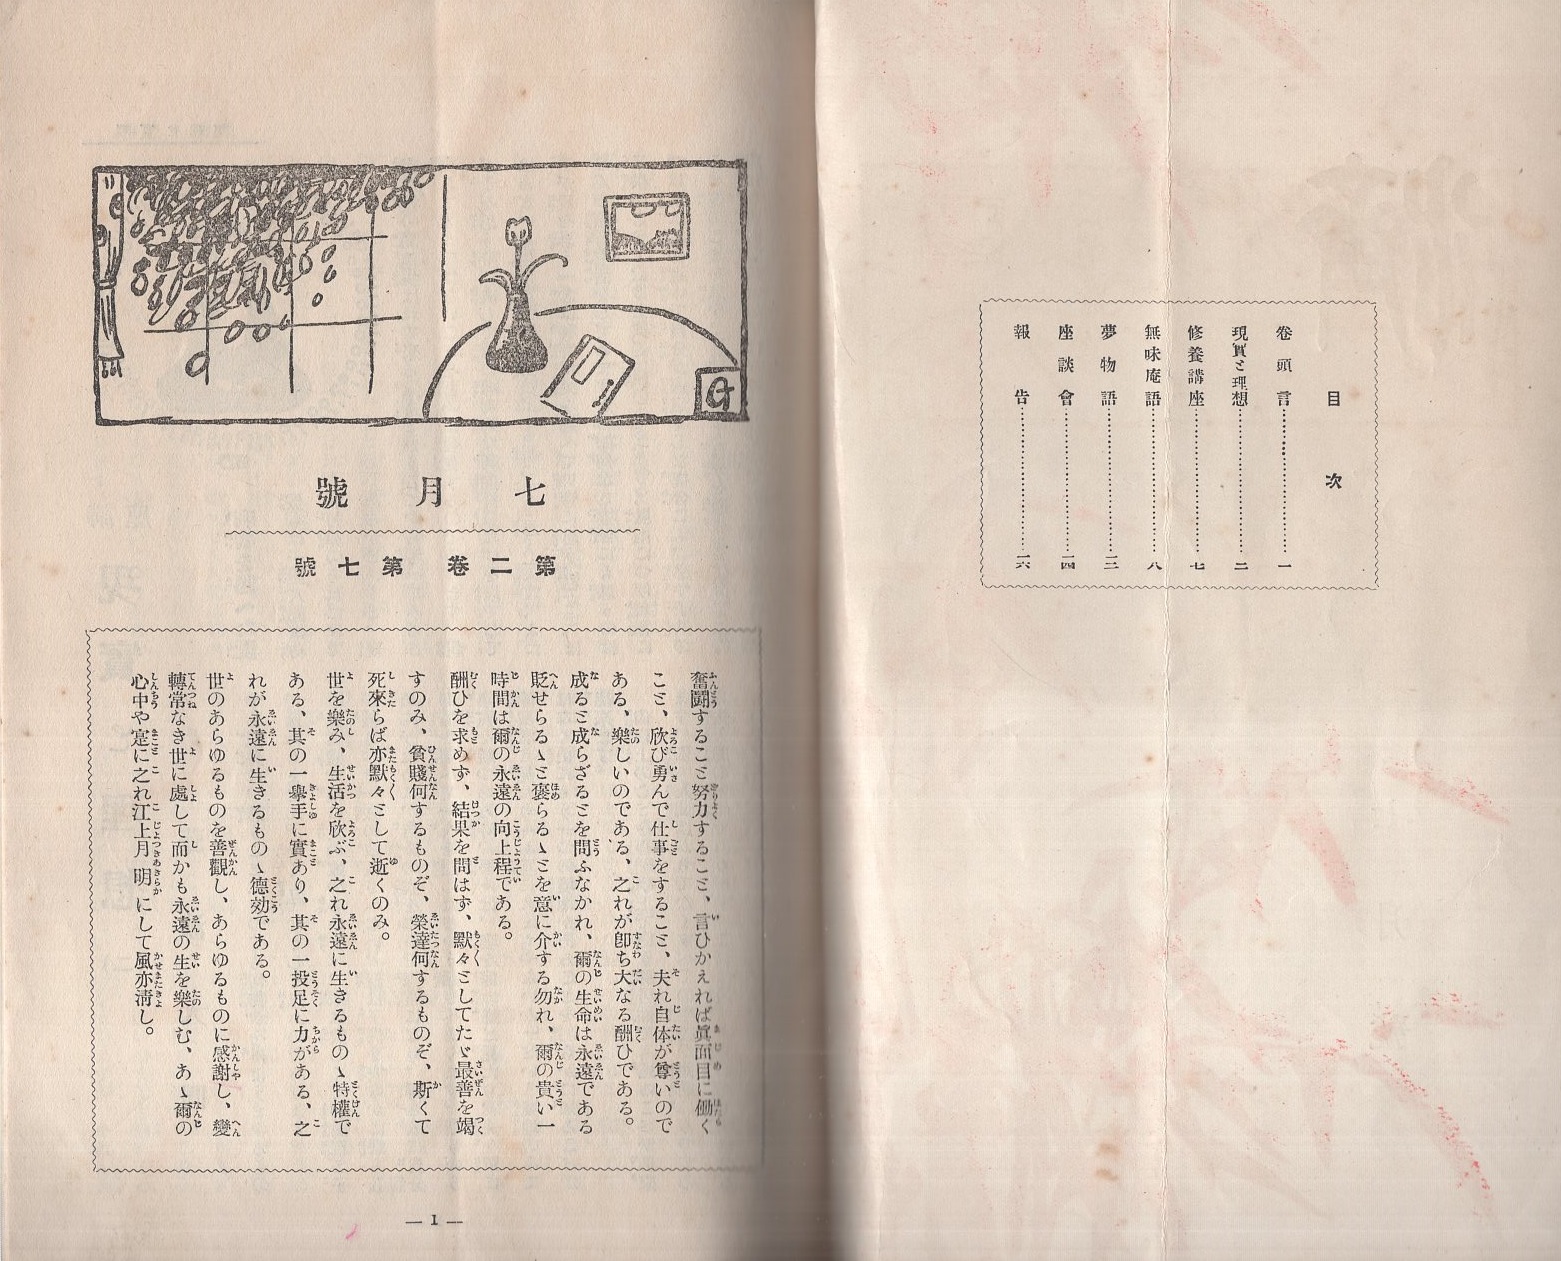 目次
卷頭言……一
現實と理想……二
修養講座……七
無味庵語……八
夢物語……一三
座談會……一四
報告……一六
G
七月號
第二卷 第七號
奮鬪することと努力すること、言ひかえれば眞面目に働く
こと、欣び勇んで仕事をすること、夫れ自体が尊いので
ある、樂しいのである、之れが卽ち大なる酬ひである。
成ると成らざるとを問ふなかれ、爾の生命は永遠である
貶せらるゝと褒らるゝとを意に介する勿れ、爾の貴い一
時間は爾の永遠の向上程である。
酬ひを求めず、結果を問はず、默々としてたゞ最善を竭
すのみ、貧賤何するものぞ、榮達何するものぞ、斯くて
死來らば亦默々として逝くのみ。
世を樂み、生活を欣ぶ、之れ永遠に生きるものゝ特權で
ある、其の一擧手に實あり、其の一投足に力がある、之
れが永遠に生きるものゝ德効である。
世のあらゆるものを善觀し、あらゆるものに感謝し、變
轉常なき世に處して而かも永遠の生を樂しむ、あゝ爾の
心中や寔に之れ江上月明にして風亦淸し。
— 1 —